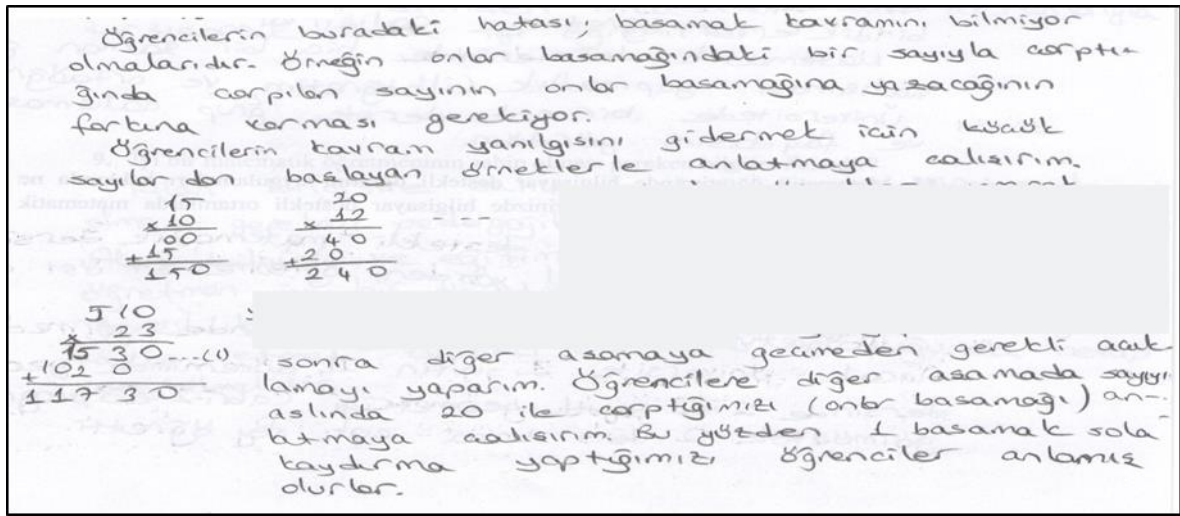 Öğrencilerin buradaki hatası, basamak kavramını bilmiyor
olmalarıdır. Örneğin onlar basamağındaki bir sayıyla çarptı-
ğında çarpılan sayının onlar basamağına yazacağının
farkına varması gerekiyor.
Öğrencilerin kavram yanılgısını gidermek için küçük
sayılardan başlayan örneklerle anlatmaya çalışırım.
15
x 10
00
+15
150
20
x 12
40
+20
240
---
510
x 23
1530...(1)
+1020
11730
sonra diğer aşamaya geçmeden gerekli açık-
lamayı yaparım. Öğrencilere diğer aşamada sayıyı
aslında 20 ile çarptığımızı (onlar basamağı) an-
latmaya çalışırım. Bu yüzden 1 basamak sola
kaydırma yaptığımızı öğrenciler anlamış
olurlar.